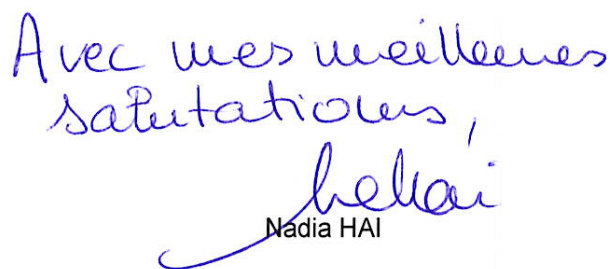 Avec mes meilleures
salutations,
Nadia HAI